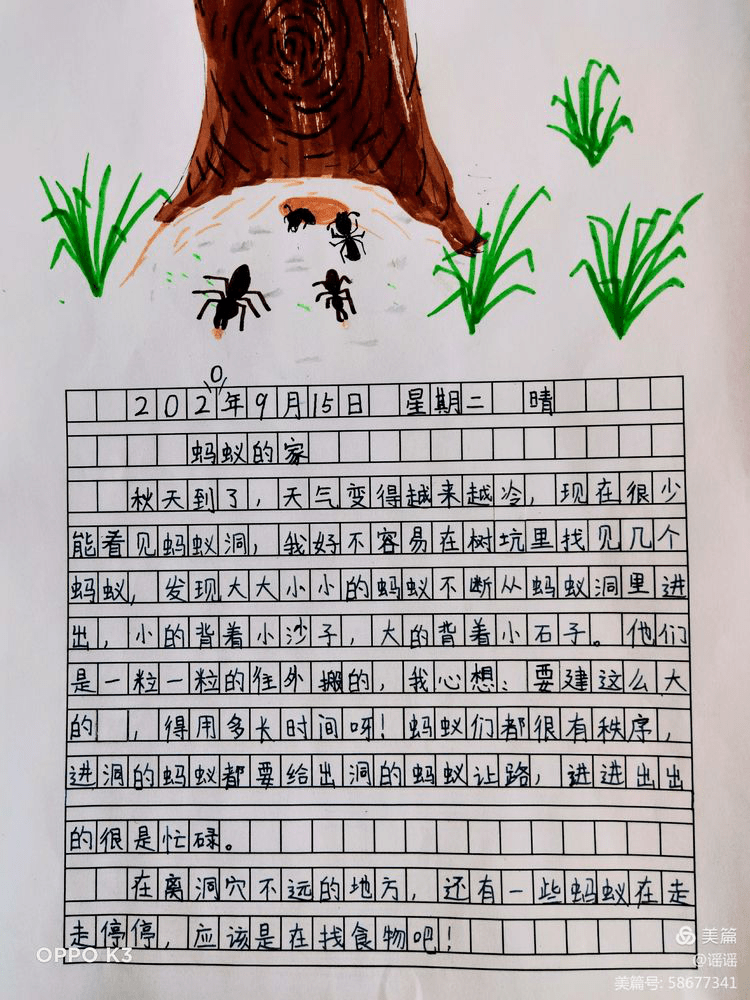 0
202年9月15日 星期二 晴
蚂蚁的家
秋天到了，天气变得越来越冷，现在很少
能看见蚂蚁洞，我好不容易在树坑里找见几个
蚂蚁，发现大大小小的蚂蚁不断从蚂蚁洞里进
出，小的背着小沙子，大的背着小石子。他们
是一粒一粒的往外搬的，我心想：要建这么大
的 ，得用多长时间呀！蚂蚁们都很有秩序，
进洞的蚂蚁都要给出洞的蚂蚁让路，进进出出
的很是忙碌。
在离洞穴不远的地方，还有一些蚂蚁在走
走停停，应该是在找食物吧！
OPPO K3
美篇
@谣谣
美篇号: 58677341